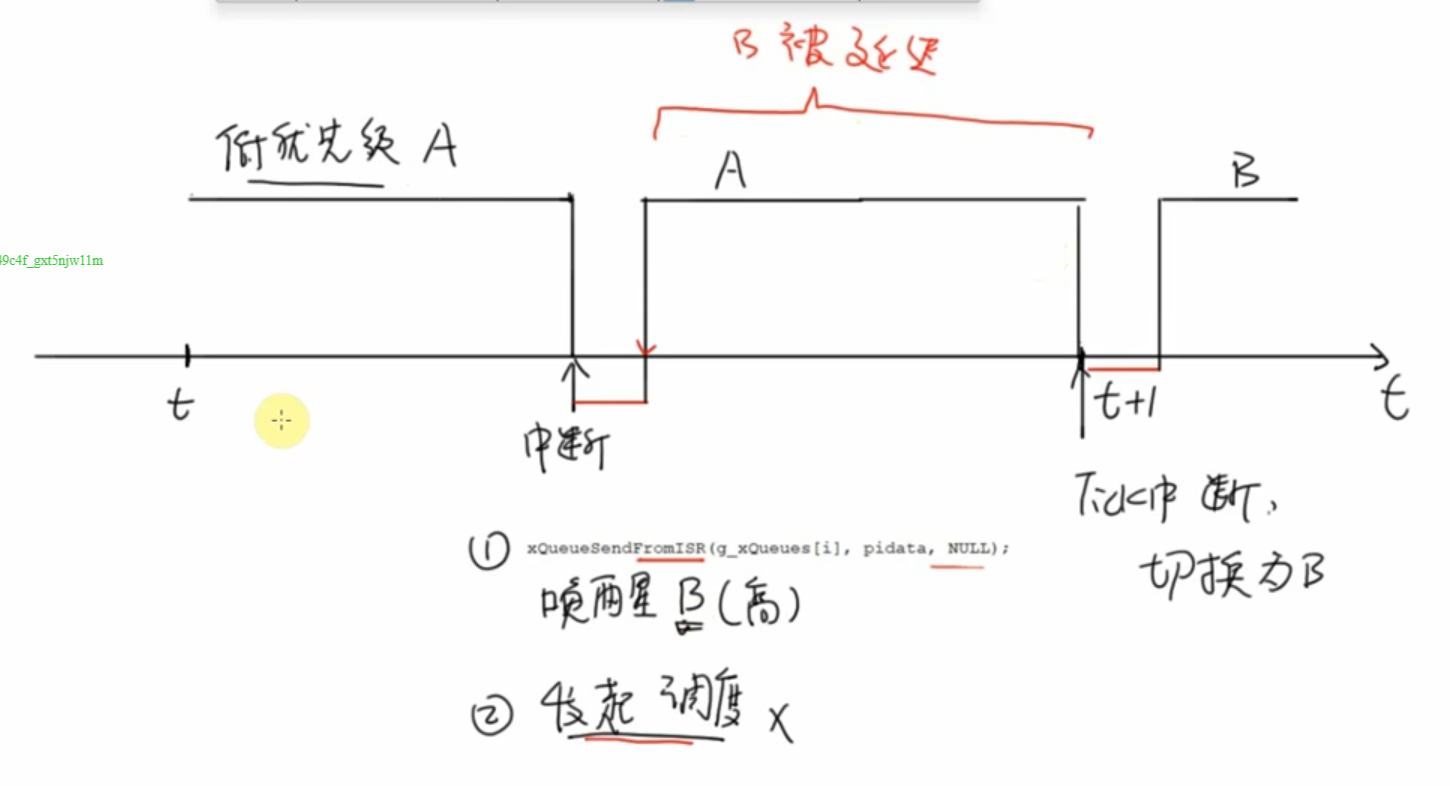 B 被延迟
低优先级 A
A
B
49c4f_gxt5njw11m
t
中断
t+1
t
Tick中断,
切换为B
① xQueueSendFromISR(g_xQueues[i], pidata, NULL);
唤醒 B (高)
② 发起调度 X